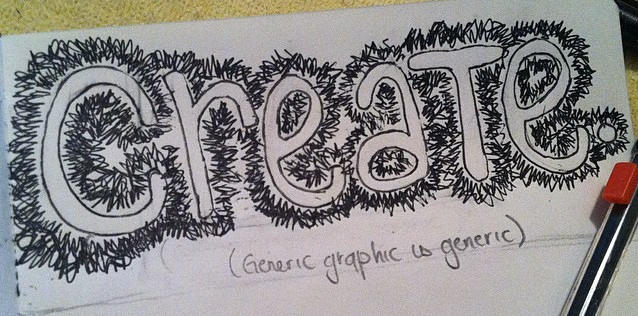 CreaTe.
(Generic graphic is generic)